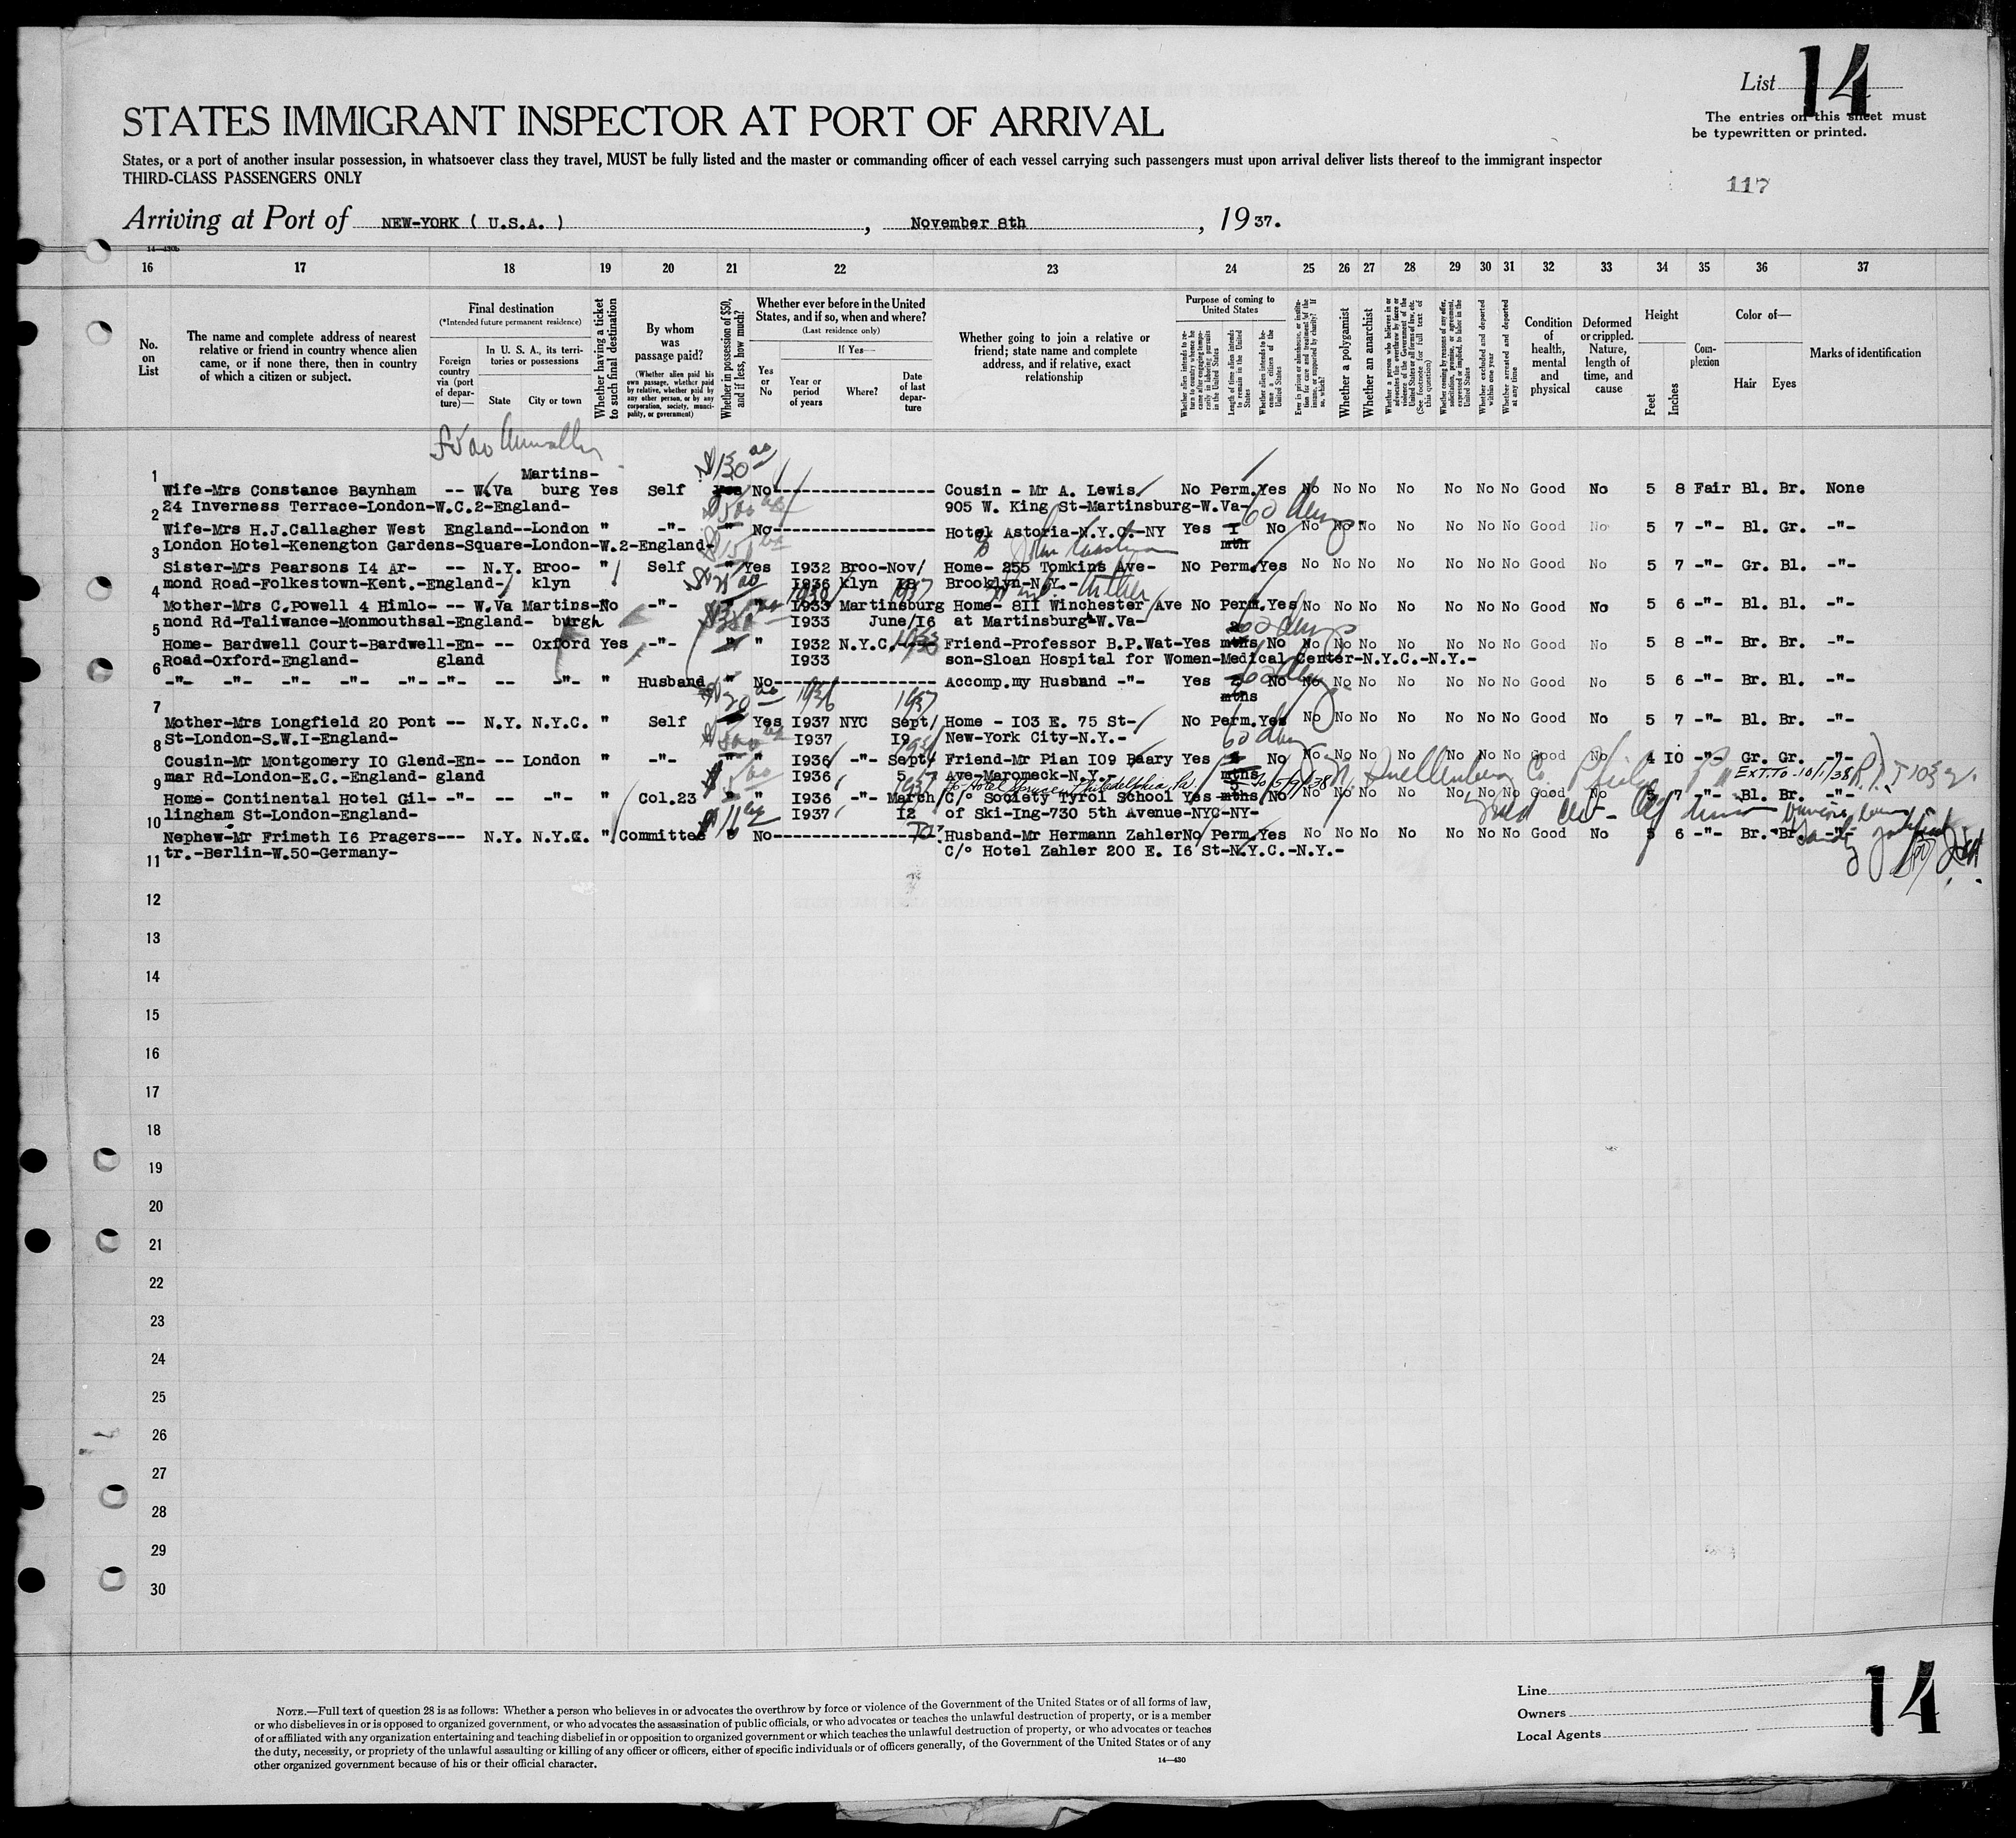 List 14
STATES IMMIGRANT INSPECTOR AT PORT OF ARRIVAL
The entries on this sheet must
be typewritten or printed.
States, or a port of another insular possession, in whatsoever class they travel, MUST be fully listed and the master or commanding officer of each vessel carrying such passengers must upon arrival deliver lists thereof to the immigrant inspector
THIRD-CLASS PASSENGERS ONLY
117
Arriving at Port of NEW-YORK ( U.S.A. ) , November 8th , 1937.
16 17 18 19 20 21 22 23 24 25 26 27 28 29 30 31 32 33 34 35 36 37
No. on List
The name and complete address of nearest relative or friend in country whence alien came, or if none there, then in country of which a citizen or subject.
Final destination
(*Intended future permanent residence)
Foreign country via (port of departure)—
In U. S. A., its territories or possessions
State
City or town
Whether having a ticket to such final destination
By whom was passage paid?
(Whether alien paid his own passage, whether paid by relative, whether paid by any other person, or by any corporation, society, municipality, or government)
Whether in possession of $50, and if less, how much?
Whether ever before in the United States, and if so, when and where?
(Last residence only)
Yes or No
If Yes—
Year or period of years
Where?
Date of last departure
Whether going to join a relative or friend; state name and complete address, and if relative, exact relationship
Purpose of coming to United States
Whether alien intends to return to country whence he came after engaging temporarily in laboring pursuits in the United States
Length of time alien intends to remain in the United States
Whether alien intends to become a citizen of the United States
Ever in prison or almshouse, or institution for care and treatment of the insane, or supported by charity? If so, which?
Whether a polygamist
Whether an anarchist
Whether a person who believes in or advocates the overthrow by force or violence of the Government of the United States or all forms of law, etc. (See footnote for full text of this question)
Whether coming by reason of any offer, solicitation, promise, or agreement, expressed or implied, to labor in the United States
Whether excluded and deported within one year
Whether arrested and deported at any time
Condition of health, mental and physical
Deformed or crippled. Nature, length of time, and cause
Height
Feet
Inches
Complexion
Color of—
Hair
Eyes
Marks of identification
1 Martins-
Wife-Mrs Constance Baynham -- W.Va burg Yes Self Yes No----------------- Cousin - Mr A. Lewis No Perm.Yes No No No No No No No Good No 5 8 Fair Bl. Br. None
24 Inverness Terrace-London-W.C.2-England- 905 W. King St-Martinsburg-W.Va-
2
Wife-Mrs H.J.Callagher West England--London " -"- " No----------------- Hotel Astoria-N.Y.C.-NY Yes I mth No No No " No No No No Good No 5 7 -"- Bl. Gr. -"-
London Hotel-Kenengton Gardens-Square-London-W.2-England-
3
Sister-Mrs Pearsons I4 Ar- -- N.Y. Broo- " Self " Yes I932 Broo-Nov/ Home- 255 Tomkins Ave- No Perm.Yes No No No No No No No Good No 5 7 -"- Gr. Bl. -"-
mond Road-Folkestown-Kent.-England- klyn I936 klyn I2 Brooklyn-N.Y.-
4
Mother-Mrs C.Powell 4 Himlo- -- W.Va Martins-No -"- " " I933 Martinsburg Home- 8II Winchester Ave No Perm.Yes No No No No No No No Good No 5 6 -"- Bl. Bl. -"-
nond Rd-Taliwance-Monmouthsal-England- burgh I933 June/I6 at Martinsburg-W.Va-
5
Home- Bardwell Court-Bardwell-En- -- Oxford Yes -"- " " I932 N.Y.C. Friend-Professor B.P.Wat-Yes 2 mths No No No No No No No No Good No 5 8 -"- Br. Br. -"-
Road-Oxford-England- gland I933 son-Sloan Hospital for Women-Medical Center-N.Y.C.-N.Y.-
6
-"- -"- -"- -"- -"- -"- -- -"- " Husband " No----------------- Accomp.my Husband -"- Yes 2 mths No No No No No No No No Good No 5 6 -"- Br. Bl. -"-
7
Mother-Mrs Longfield 20 Pont -- N.Y. N.Y.C. " Self " Yes I937 NYC Sept/ Home - I03 E. 75 St- No Perm.Yes No No No No No No No Good No 5 7 -"- Bl. Br. -"-
St-London-S.W.I-England- I937 I9 New-York City-N.Y.-
8
Cousin-Mr Montgomery IO Glend-En- -- London " -"- " " I936 -"- Sept/ Friend-Mr Pian I09 Baary Yes mths No No No No No No No No Good No 4 IO -"- Gr. Gr. -"-
mar Rd-London-E.C.-England- gland I936 5 Ave-Maromeck-N.Y.-
EXT. TO 10/1/38
9 Philadelphia, Pa
Home- Continental Hotel Gil- -"- -- -"- " Col.23 " " I936 -"- March C/° Society Tyrol School Yes 5 mths No No No No No No No No Good No 5 7 -"- Bl. Br. -"-
lingham St-London-England- I937 I2 of Ski-Ing-730 5th Avenue-NYC-NY-
10
Nephew-Mr Frimeth I6 Pragers--- N.Y. N.Y.C. " Committee " No----------------- Husband-Mr Hermann Zahler No Perm.Yes No No No No No No No Good No 5 6 -"- Br. Br. -"-
tr.-Berlin-W.50-Germany- C/° Hotel Zahler 200 E. I6 St-N.Y.C.-N.Y.-
11
12
13
14
15
16
17
18
19
20
21
22
23
24
25
26
27
28
29
30
NOTE.—Full text of question 28 is as follows: Whether a person who believes in or advocates the overthrow by force or violence of the Government of the United States or of all forms of law,
or who disbelieves in or is opposed to organized government, or who advocates the assassination of public officials, or who advocates or teaches the unlawful destruction of property, or is a member
of or affiliated with any organization entertaining and teaching disbelief in or opposition to organized government or which teaches the unlawful destruction of property, or who advocates or teaches
the duty, necessity, or propriety of the unlawful assaulting or killing of any officer or officers, either of specific individuals or of officers generally, of the Government of the United States or of any
other organized government because of his or their official character.
14—430
Line
Owners
Local Agents
14